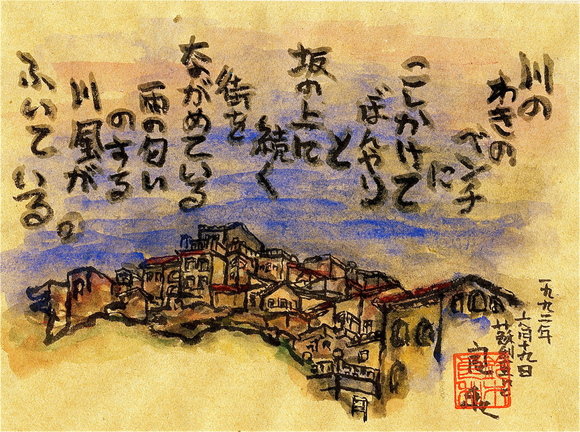 川の
わきの
ベンチ
に
こしかけて
ぼんやり
と
坂の上に
続く
街を
ながめている
雨の匂い
のする
川風が
ふいている。
一九九二年
六月十九日